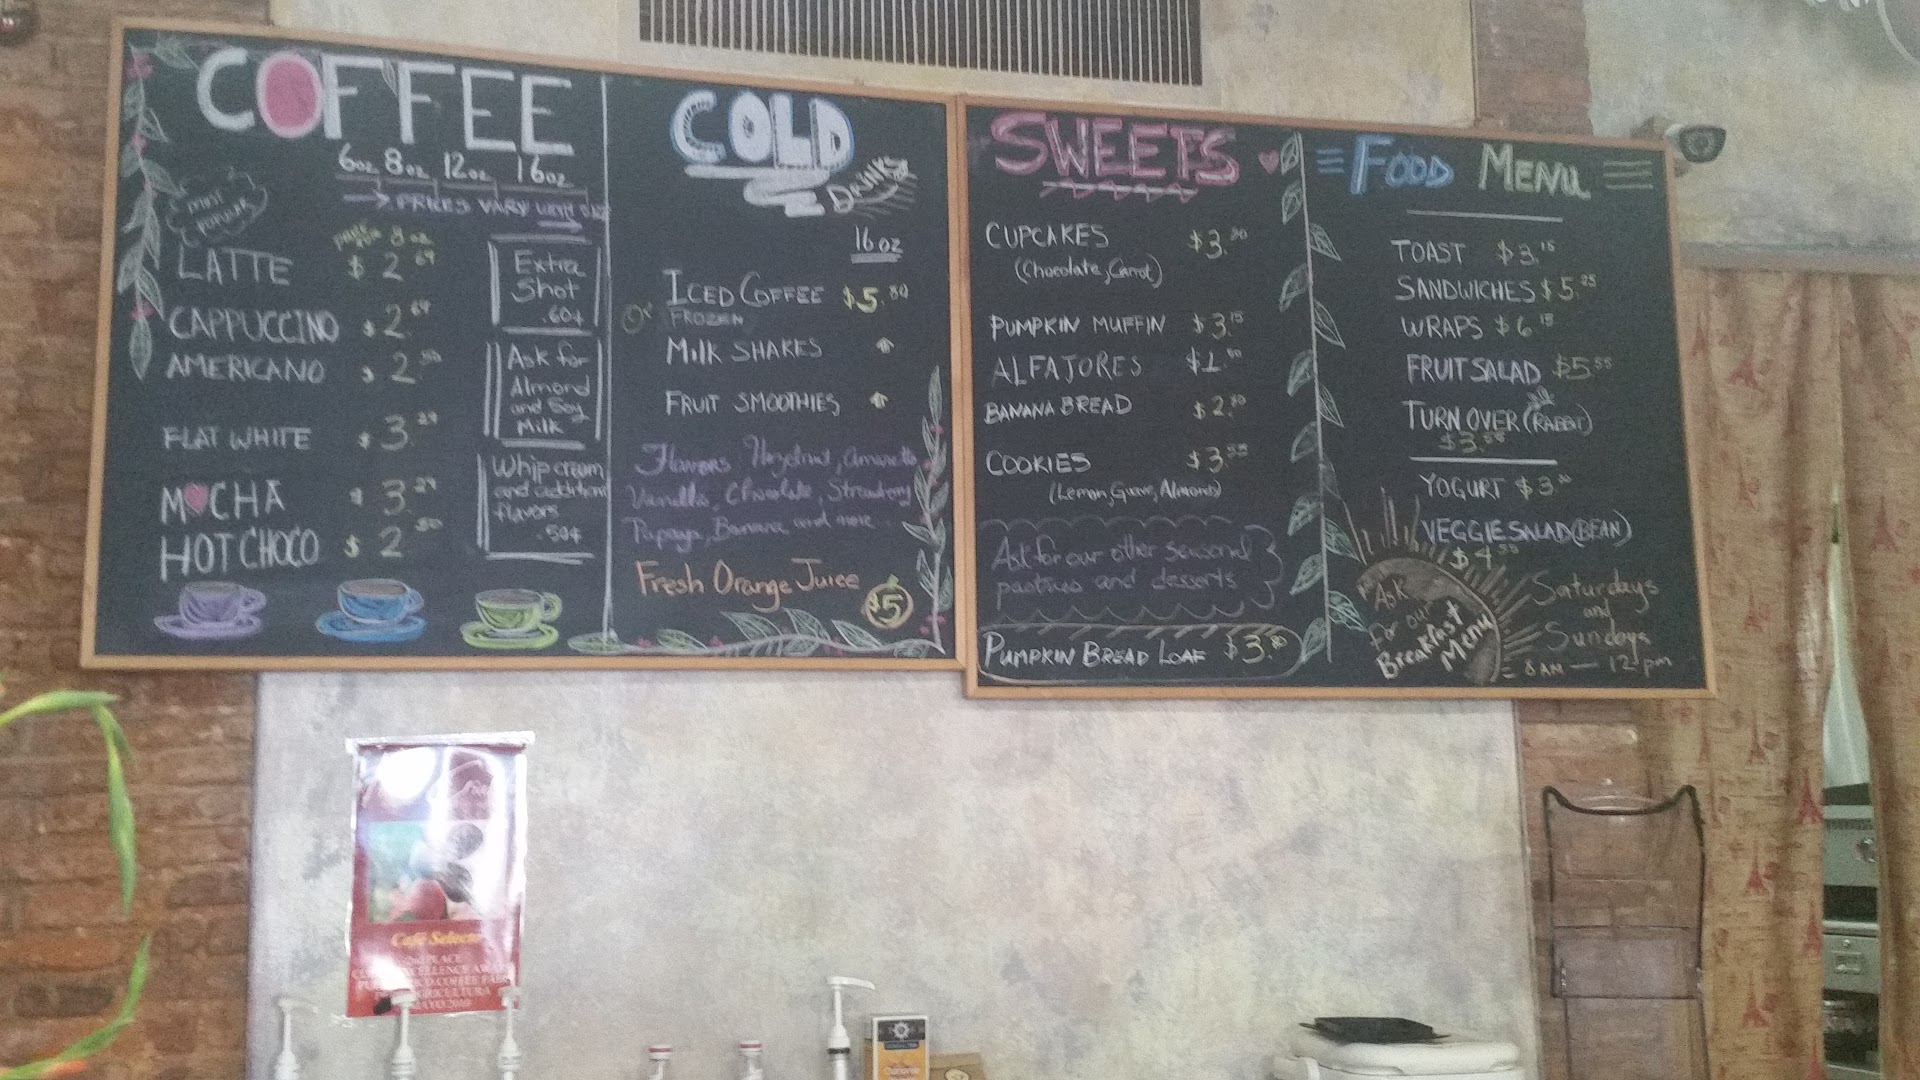 COFFEE
6oz 8oz 12oz 16oz
PRICES VARY WITH
most
POPULAR
8oz
LATTE $2.69
CAPPUCCINO $2.69
AMERICANO $2.50
FLAT WHITE $3.29
MOCHA $3.29
HOT CHOCO $2.50
Extra
Shot
.60¢
Ask for
Almond
and Soy
Milk
Whip cream
and additional
flavors
.50¢
COLD
DRINKS
16oz
ICED COFFEE $5.80
FROZEN
MILK SHAKES
FRUIT SMOOTHIES
Flavors Hazelnut, Amaretto
Vanilla, Chocolate, Strawberry
Papaya, Banana and more
Fresh Orange Juice $5
SWEETS
CUPCAKES $3.
(Chocolate, Carrot)
PUMPKIN MUFFIN $3.15
ALFAJORES $1.50
BANANA BREAD $2.80
COOKIES $3.55
(Lemon, Guava, Almonds)
Ask for our other seasonal
pastries and desserts
PUMPKIN BREAD LOAF $3.80
FOOD MENU
TOAST $3.15
SANDWICHES $5.25
WRAPS $6.15
FRUIT SALAD $5.55
TURN OVER (RABBIT)
$3.55
YOGURT $3.
VEGGIE SALAD (BEAN)
$4.55
Ask
For our
Breakfast
Menu
Saturdays
and
Sundays
8AM — 12pm
Café Selecto
2nd PLACE